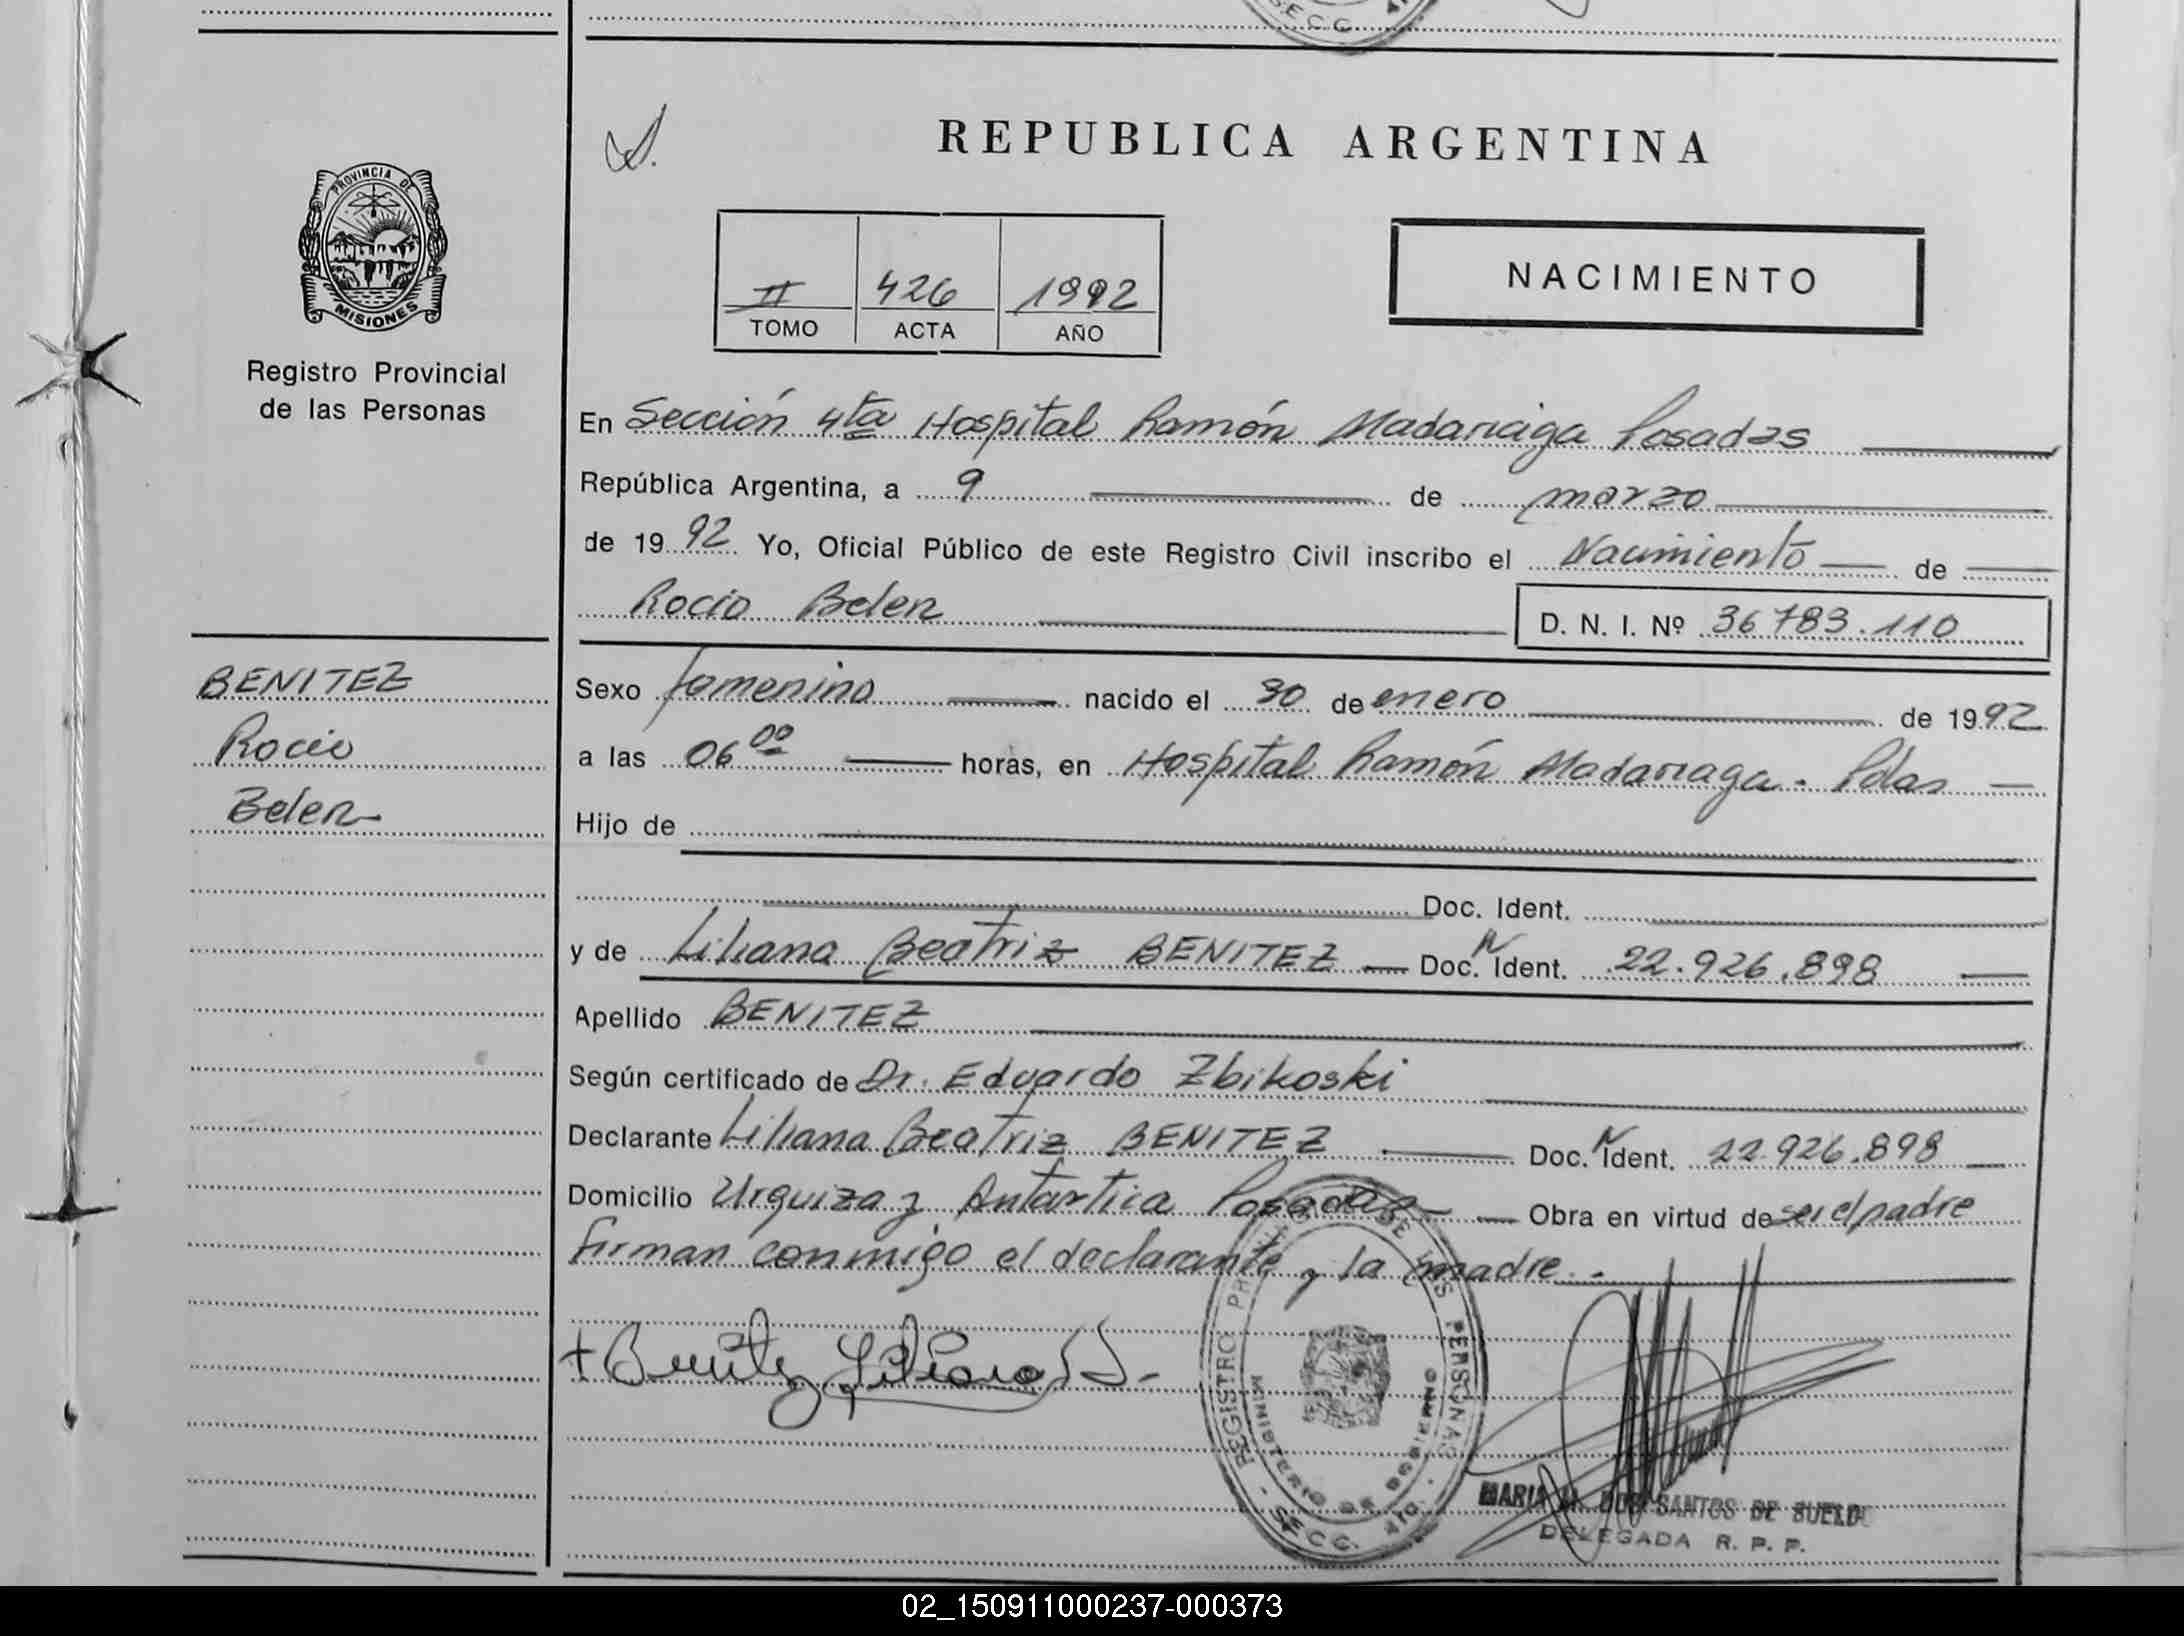 SECC.
REPUBLICA ARGENTINA
PROVINCIA DE
MISIONES
Registro Provincial
de las Personas
II 426 1992
TOMO ACTA AÑO
NACIMIENTO
En Sección 4ta Hospital Ramón Madariaga Posadas
República Argentina, a 9 de marzo
de 1992 Yo, Oficial Público de este Registro Civil inscribo el Nacimiento de
Rocio Belen D. N. I. Nº 36783.110
BENITEZ
Rocio
Belen
Sexo femenino nacido el 30 de enero de 1992
a las 06 00 horas, en Hospital Ramón Madariaga - Pdas
Hijo de
Doc. Ident.
y de Liliana Beatriz BENITEZ Doc. N Ident. 22.926.898
Apellido BENITEZ
Según certificado de Dr. Eduardo Zbikoski
Declarante Liliana Beatriz BENITEZ Doc. N Ident. 22.926.898
Domicilio Urquiza y Antartica Posadas Obra en virtud de ser el padre
firman conmigo el declarante y la madre.
+ Benitez Liliana B.
REGISTRO PROVINCIAL DE LAS PERSONAS
MINISTERIO DE GOBIERNO
- SECC. 4ta. -
MARIA M. DOS SANTOS DE SUELDO
DELEGADA R. P. P.
02_150911000237-000373